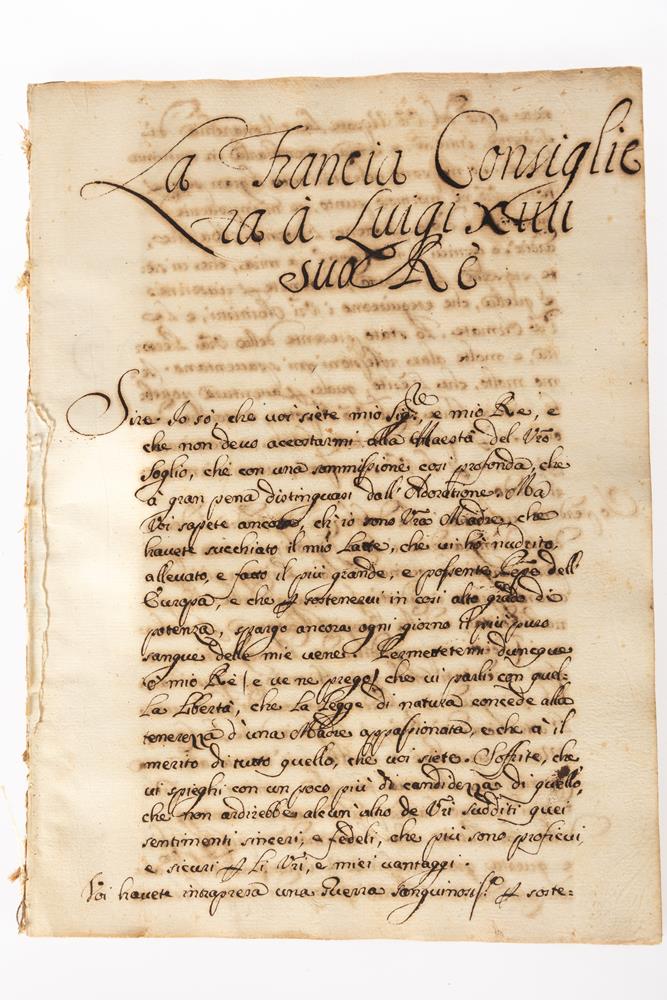 La Francia Consiglie
ra à Luigi XIIII
suo Rè
Sire Io sò, che voi siete mio Sig.re, e mio Re, e
che non devo accostarmi alla Maestà del Vro
soglio, che con una sommissione così profonda, che
à gran pena distinguasi dall'Adoratione. Ma
Voi sapete ancora, ch'io sono Vra Madre, che
havete succhiato il mio Latte, che vi hò nudrito,
allevato, e fatto il più grande, e possente dell'
Europa, e che p sostenervi in così alto grado di
potenza, spargo ancora ogni giorno il più puro
sangue delle mie vene. Permettetemi dunque
ò mio Rè (e ve ne prego) che vi parli con quel=
La Libertà, che La Legge di natura concede alla
tenerezza d'una Madre appassionata, e che à il
merito di tutto quello, che voi siete. Soffrite, che
vi spieghi con un poco più di candidezza di quello,
che non ardirebbe alcun'altro de Vri sudditi quei
sentimenti sinceri, e fedeli, che più sono proficui,
e sicuri p Li Vri, e miei vantaggi.
Voi havete intrapresa una Guerra sanguinosiss.a p soste=